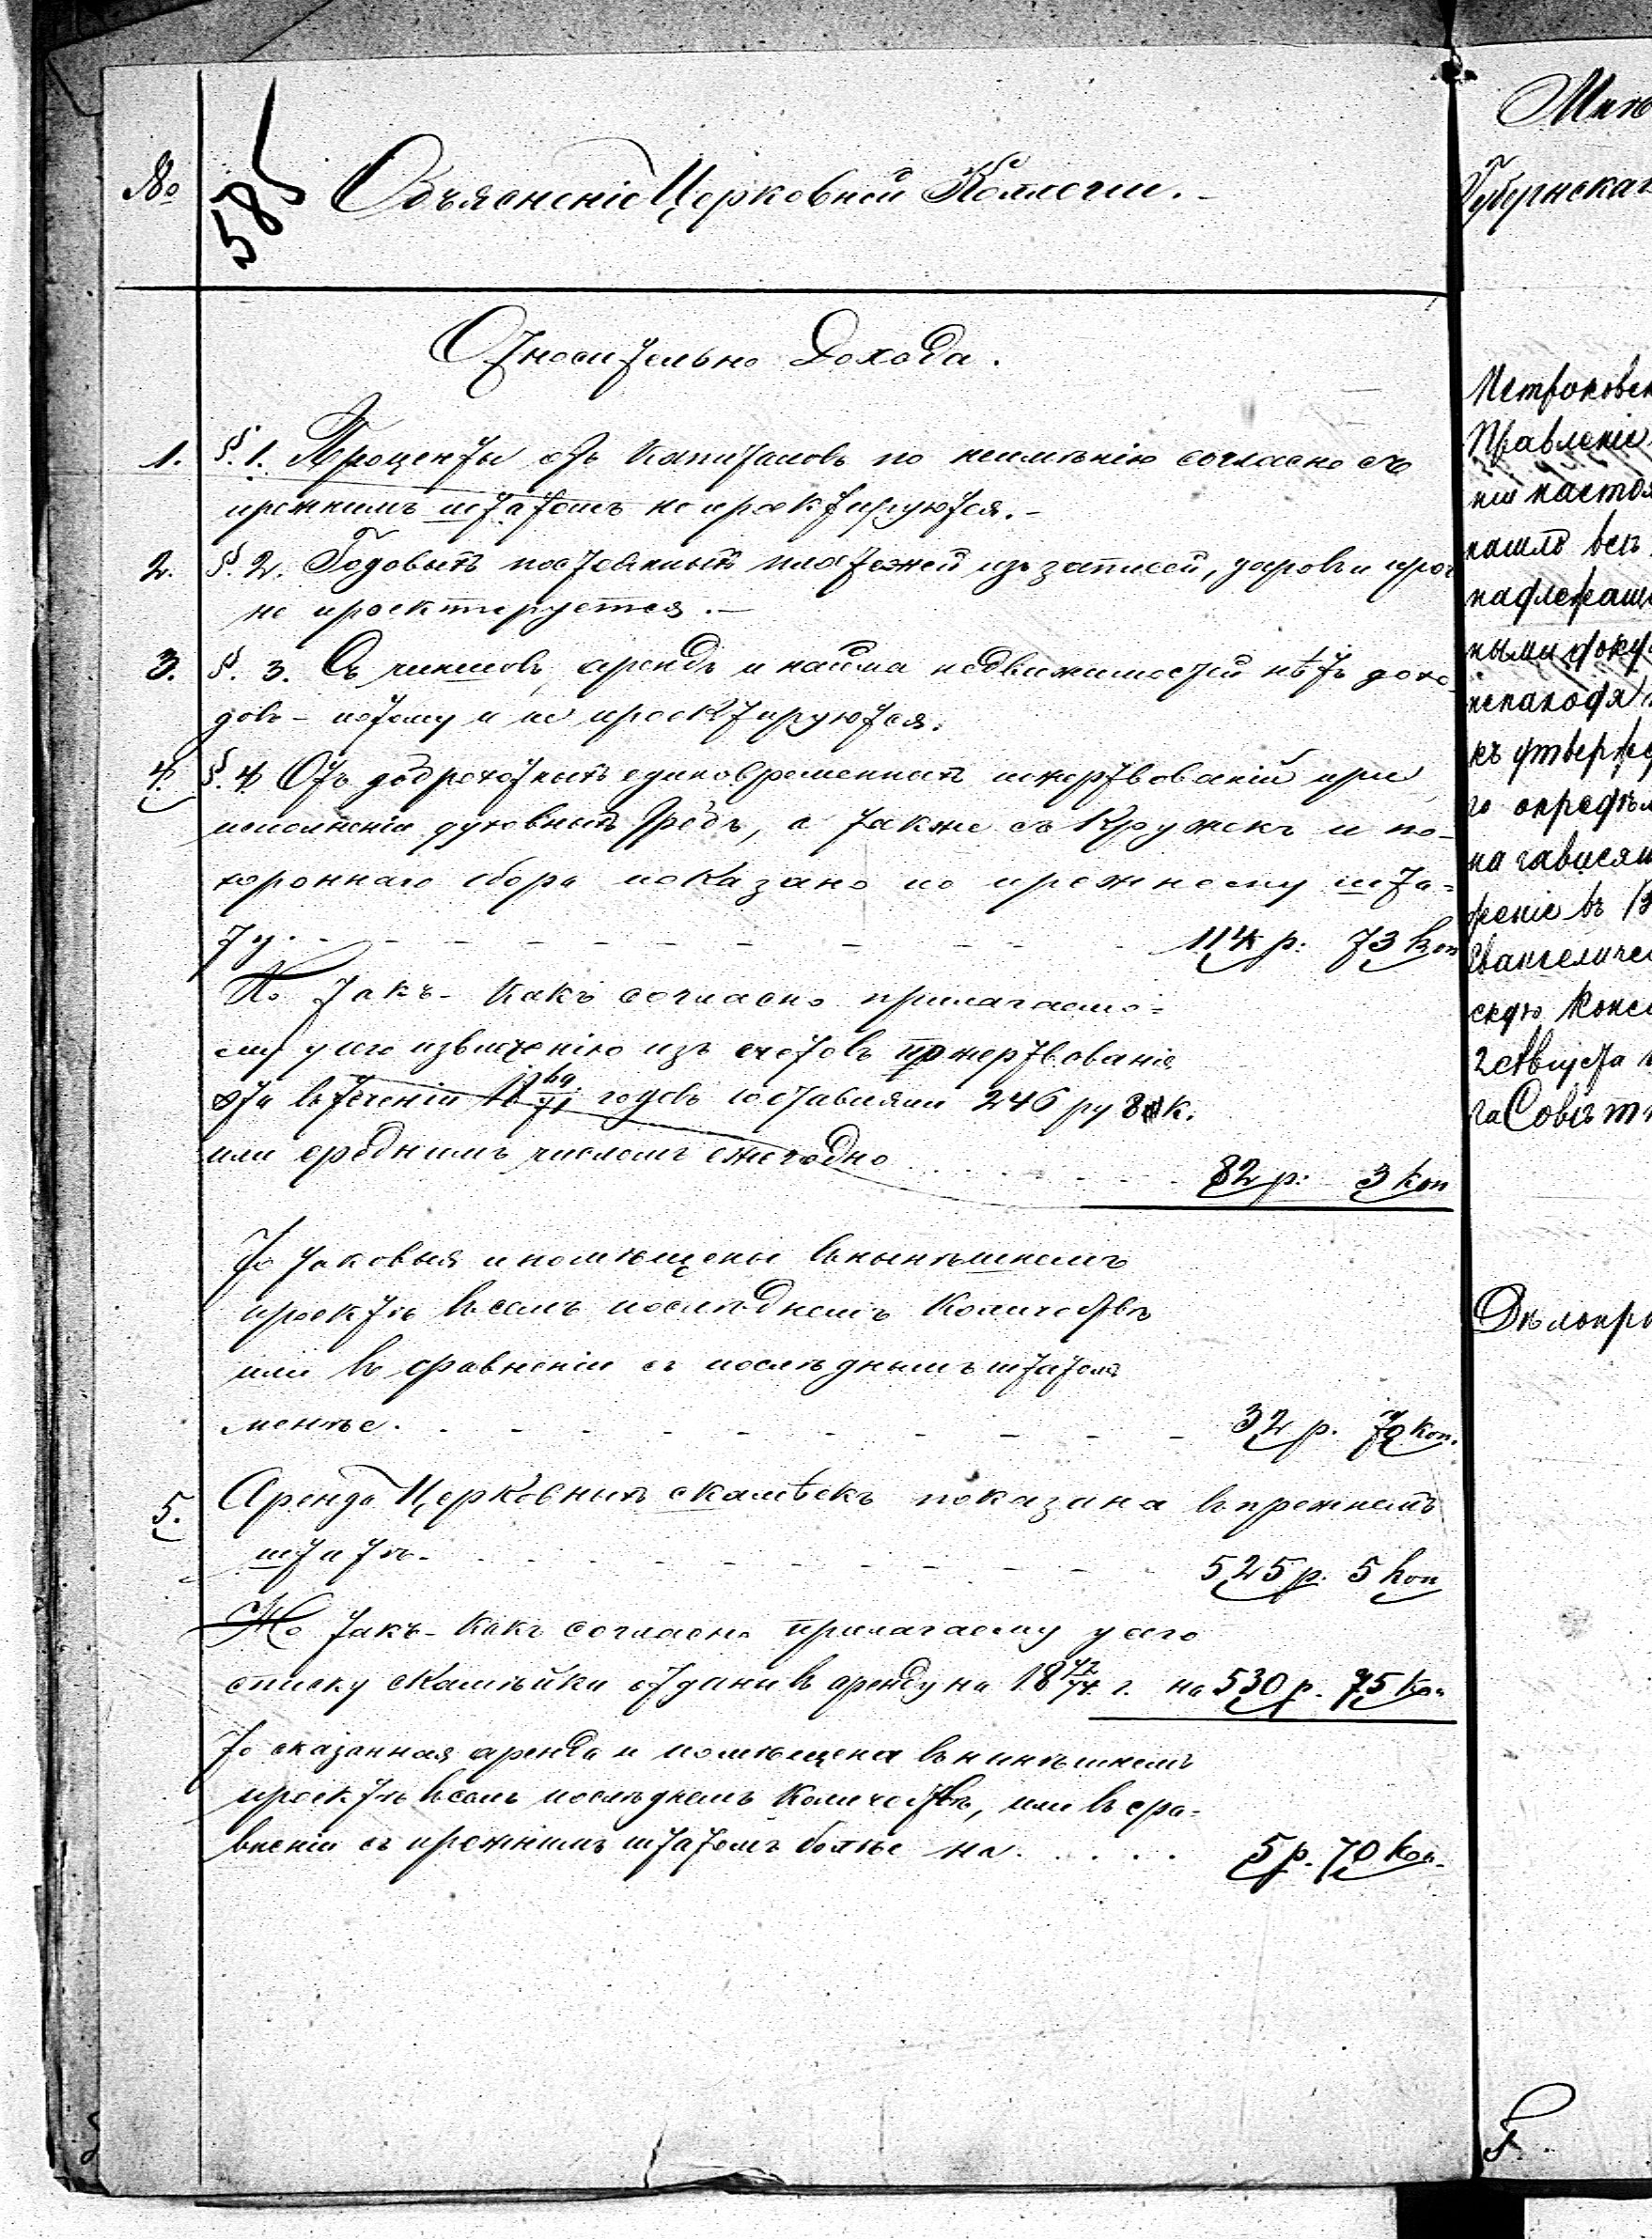 № 585 Объясненіе Церковной Коллегіи.
Относительно Дохода.
1. §. 1. Проценты отъ Капиталовъ по неимѣнію согласно съ
прежнимъ штатомъ не проектируются.
2. §. 2. Годовыхъ постоянныхъ платежей изъ записей, даровъ и проч
не проектируется.
3. §. 3. Съ чиншовъ, арендъ и найма недвижимостей нѣтъ дохо-
довъ - потому и не проектируются.
4. §. 4 Отъ доброхотныхъ единовременныхъ пожертвованій при
исполненіи духовныхъ требъ, а также съ Кружекъ и по-
хороннаго сбора показано по прежнему шта-
ту. 114 р: 73 коп
Но такъ-какъ согласно прилагаемо-
му у сего извлеченію изъ счетовъ пожертвованія
эти въ теченіи 18 69/71 годовъ составляли 246 ру 8 к.
или среднимъ числомъ ежегодно 82 р: 3 коп
то таковыя и помѣщены въ нынѣшнемъ
проектѣ въ семъ послѣднемъ Количествѣ
или въ сравненіи съ послѣднимъ штатомъ
менѣе. 32 р. 70 коп.
5. Аренда Церковныхъ скамѣекъ показана въ прежнемъ
штатѣ. 525 р. 5 коп
Но такъ-какъ согласно прилагаемому у сего
списку скамѣйки отданы въ аренду на 18 72/74 г. на 530 р. 75 коп
то сказанная аренда и помѣщена въ нинѣшнемъ
проектѣ въ семъ послѣднемъ Количествѣ, или въ сра-
вненіи съ прежнимъ штатомъ болѣе на 5 р. 70 коп.
Губернска
Петроковск
Правленіе
нашло всѣ
надлежащ
ными доку
къ утвержд
го опредѣл
на зависящ
реніе въ
Евангеличес
скую Конси
2 Августа
га Совѣтн
Дѣлопро